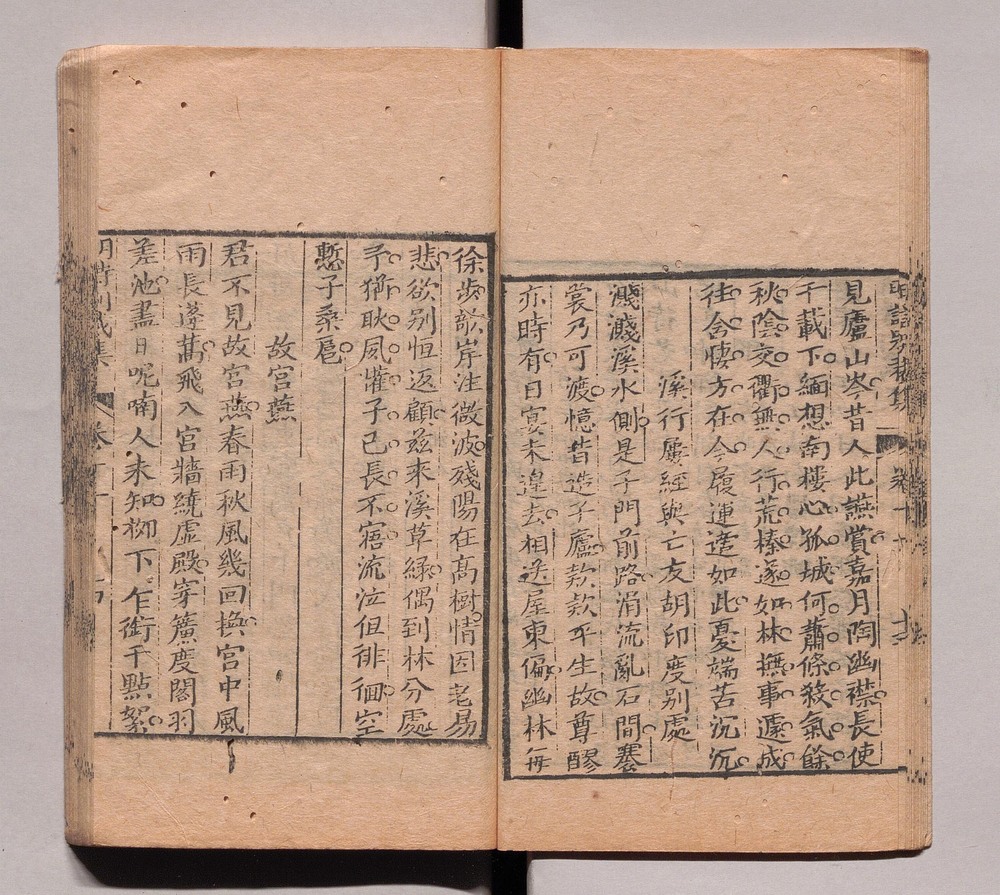 見廬山岑昔人此讌賞嘉月陶幽襟長使
千載下緬想南樓心孤城何蕭條殺氣餘
秋陰交衢無人行荒榛遂如林撫事遽成
往含悽方在今履運遣如此憂端苦沉沉
溪行屢經與亡友胡印度別處
濺濺溪水側是子門前路涓流亂石間褰
裳乃可渡憶昔造子廬欵欵平生故尊醪
亦時有日宴未遑去相送屋東偏幽林每
徐步歘岸注微波殘陽在高樹情因老易
悲欲別恒返顧茲來溪草綠偶到林分處
予猶耿夙懽子已長不寤流泣但徘徊空
慙子桑扈
故宮燕
君不見故宮燕春雨秋風幾回換宮中風
雨長蓬蒿飛入宮牆繞虛殿穿簾度閣羽
差池盡日呢喃人未知柳下乍銜千點絮